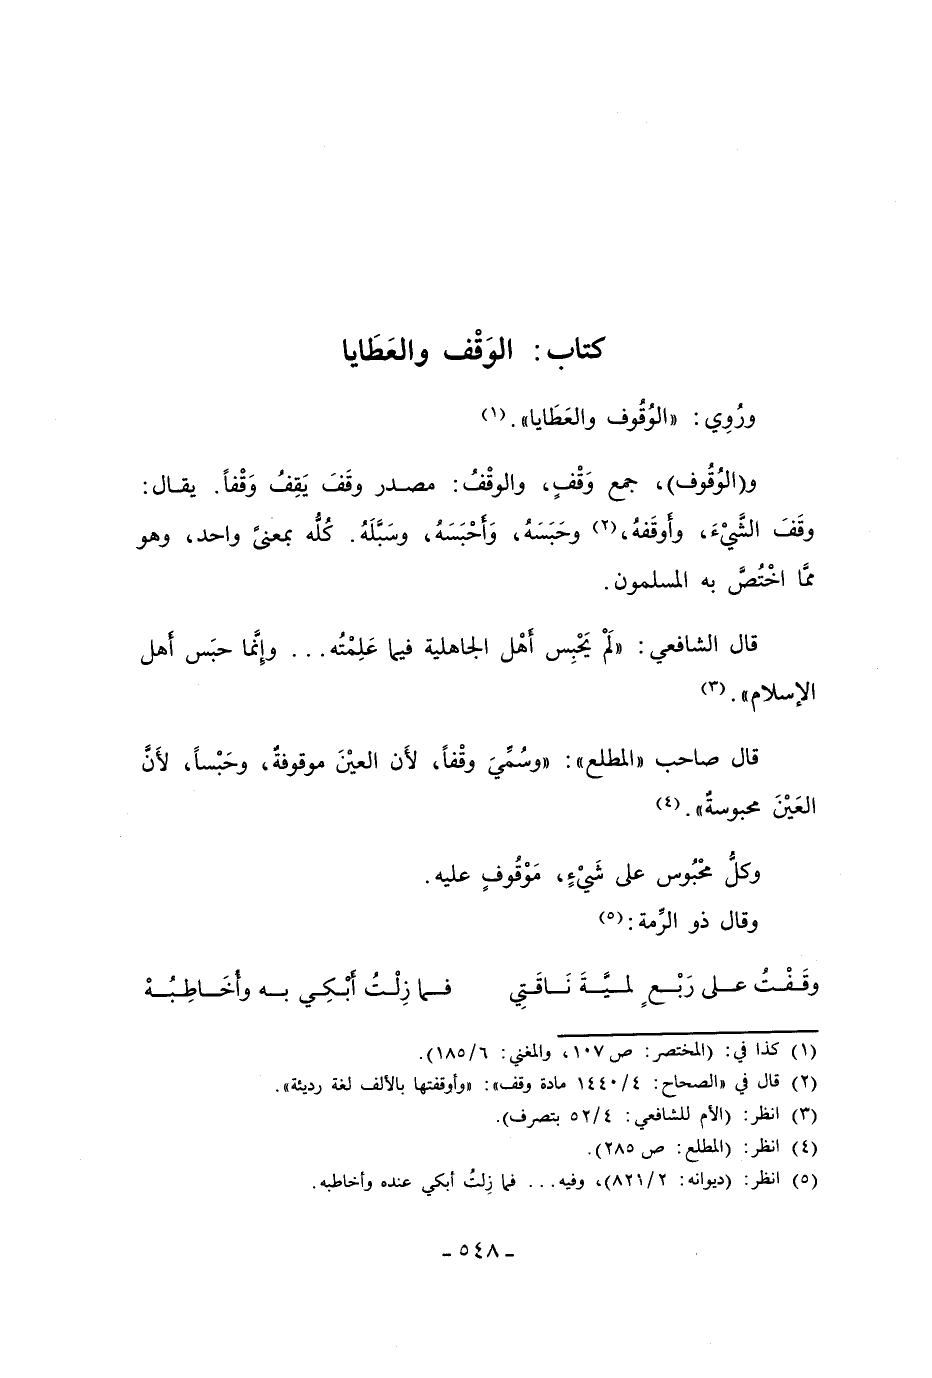 كتاب: الوَقْف والعَطَايا
ورُوِي: «الوُقُوف والعَطَايا».(١)
و(الوُقُوف)، جمع وَقْفٍ، والوقْفُ: مصدر وقَفَ يَقِفُ وَقْفاً. يقال:
وقَفَ الشَّيْءَ، وأَوقَفهُ،(٢) وحَبَسَهُ، وَأَحْبَسَهُ، وسَبَّلَهُ. كُلُّه بمعنىً واحد، وهو
ممَّا اخْتُصَّ به المسلمون.
قال الشافعي: «لَمْ يَحْبِس أَهْل الجاهلية فيما عَلِمْتُه... وإِنَّما حبَس أَهل
الإسلام».(٣)
قال صاحب «المطلع»: «وسُمِّيَ وقْفاً، لأَن العيْنَ موقوفةٌ، وحَبْساً، لأَنَّ
العَيْنَ محبوسةٌ».(٤)
وكلُّ محْبُوس على شَيْءٍ، مَوْقُوفٍ عليه.
وقال ذو الرِّمة:(٥)
وقَفْتُ على رَبْعٍ لميَّةَ نَاقَتِي فما زِلْتُ أَبْكِي به وأُخَاطِبُهْ
(١) كذا في: (المختصر: ص ١٠٧، والمغني: ١٨٥/٦).
(٢) قال في «الصحاح: ١٤٤٠/٤ مادة وقف»: «وأوقفتها بالألف لغة رديئة».
(٣) انظر: (الأم للشافعي: ٥٢/٤ بتصرف).
(٤) انظر: (المطلع: ص ٢٨٥).
(٥) انظر: (ديوانه: ٨٢١/٢)، وفيه... فما زِلتُ أبكي عنده وأخاطبه.
- ٥٤٨ -